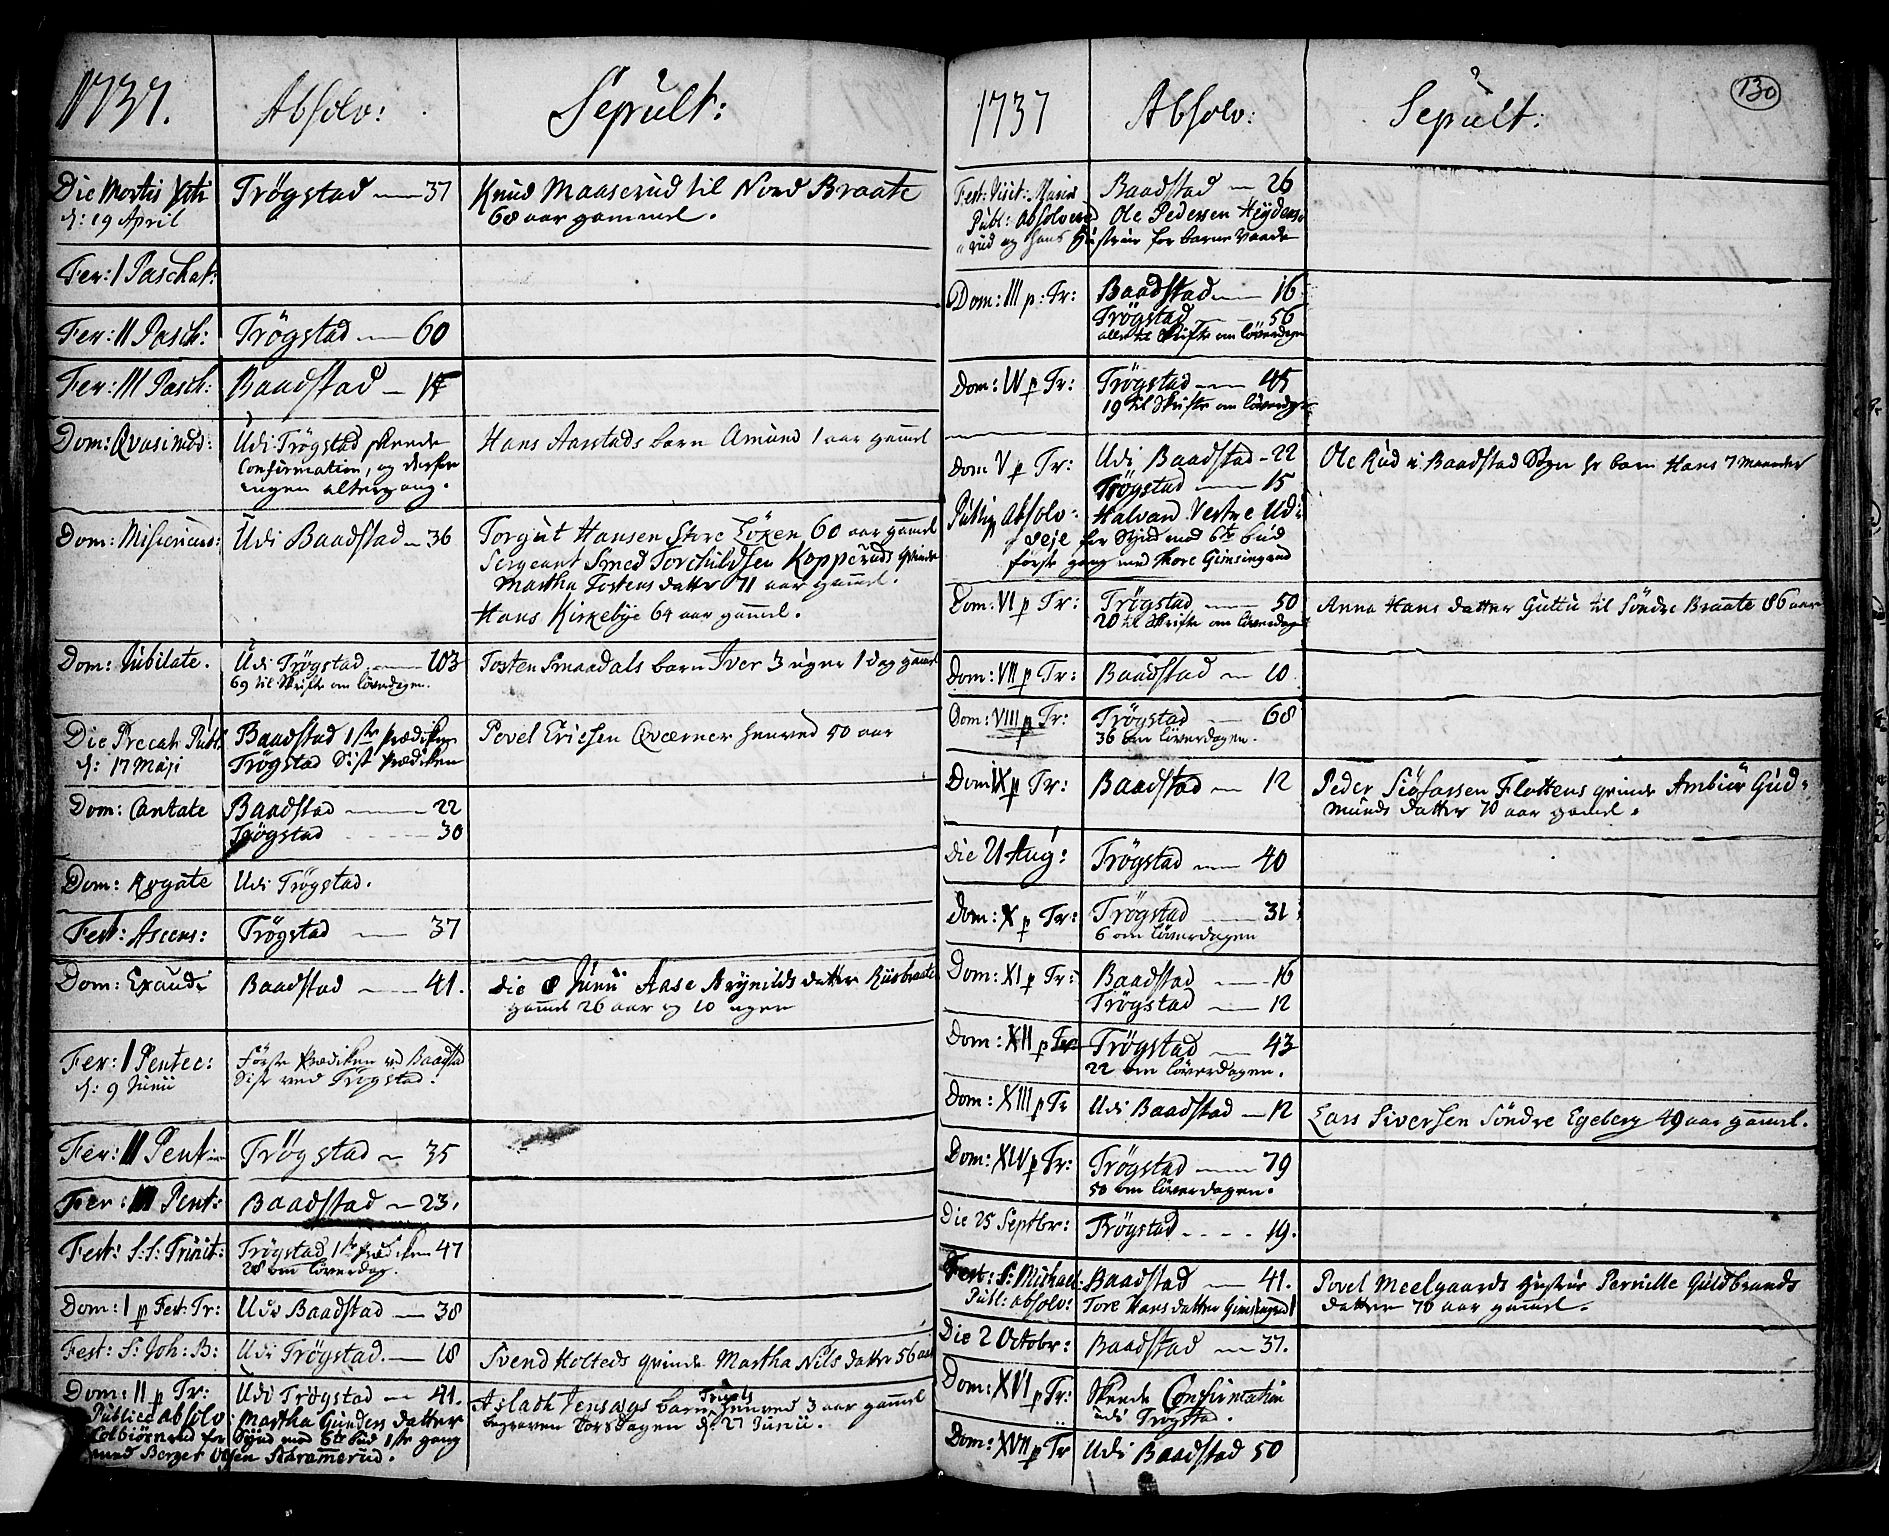 1737. Absolv: Sepult:
Die Mortis Xsti Trøgstad — 37 Knud Maaserud til Nord Braate
d: 19 April 68 aar gammel.
Fer: I Paschat:
Fer: II Pasch: Trøgstad — 60
Fer: III Pasch: Baadstad —
Dom: Qvasimod: Udi Trøgstad skeede Hans Aarstads barn Amund 1 aar gamel
Confirmation, og derfor
ingen altergang.
Dom: Misericord: Udi Baadstad — 36 Torgut Hansen Store Løken 60 aar gamel
Sergeant Smed Torchildsen Kopperuds qvinde
Martha Tostens datter 71 aar gamel.
Hans Kirkebye 64 aar gamel.
Dom: Jubilate. Udi Trøgstad — 103 Tosten Smaadals barn Iver 3 uger 1 dag gamel
69 til Skrifte om løverdagen.
Die Precat: Publ: Baadstad 1ste Prædiken Povel Ericsen Qværner henved 50 aar
d: 17 Maji Trøgstad Sist Prædiken
Dom: Cantate Baadstad — 22
Trøgstad — 30
Dom: Rogate Udi Trøgstad.
Fest: Ascens: Trøgstad — 37
Dom: Exaudi Baadstad — 41. die 8 Junii Aase Reynilds datter Riisbraate
gamel 26 aar og 10 uger
Fer: I Pentec: Første Prædiken ved Baadstad
d: 9 Junii Sist ved Trøgstad.
Fer: II Pent: Trøgstad — 35
Fer: III Pent: Baadstad — 23.
Fest: S: S: Trinit: Trøgstad 1ste Prædiken 47
28 om løverdag.
Dom: I p Fest: Tr: Udi Baadstad — 38
Fest: S: Joh: B: Udi Trøgstad. — 18 Svend Holteds qvinde Martha Nils datter 56 aar
Dom: II p Tr: Udi Trøgstad — 41. Aslach Jensægs barn Truels henved 3 aar gammel
Publice absolv: Martha Gunders datter begraven torsdagen d: 27 Junii.
Colbiørnrud for Synd mod 6te bud 1ste gang
med Berger Olsen Skramerud.
1737 Absolv: Sepult: 130
Fest: Visit: Mariæ Baadstad — 26
Publ: absolvered Ole Pedersen Heydens-
rud og hans Hustrue for barne Vaade
Dom: III p: Tr: Baadstad — 16
Trøgstad — 56
alle til Skrifte om løverdagen
Dom: IV p Tr: Trøgstad — 45
19 til Skrifte om løverdagen
Dom V p Tr: Udi Baadstad - 22 Ole Rud i Baadstad Sogn hs barn Hans 7 Maaneder
Trøgstad — 15
Publiq absolv: Halvard Vestre Ud:
veje for Synd mod 6te bud
første gang med Thore Gimsingrud
Dom: VI p Tr: Trøgstad — 50 Anna Hans datter Guttu til Søndre Braate 86 aar
20 til Skrifte om løverdagen
Dom: VII p Tr: Baadstad — 10.
Dom: VIII p Tr: Trøgstad — 68
36 om løverdagen.
Dom IX p Tr: Baadstad — 12 Peder Siøfarsen Flattens qvinde Ambiør Gud-
munds datter 70 aar gamel.
Die 21 Aug: Trøgstad — 40
Dom: X p Tr: Trøgstad — 31
6 om løverdagen
Dom: XI p Tr: Baadstad — 16
Trøgstad — 12
Dom: XII p Tr: Trøgstad — 43
22 om løverdagen.
Dom: XIII p Tr Udi Baadstad — 12 Lars Siversen Søndre Egeberg 49 aar gamel.
Dom: XIV p Tr: Trøgstad — 79
50 om løverdagen.
Die 25 Septbr: Trøgstad - - - 19.
Fest: S: Michael: Baadstad — 41. Povel Meelgaards Hustrue Pernille Guldbrands
Publ: absolv: Tore Hans datter Gimsingrud datter 70 aar gamel.
Die 2 Octobr: Baadstad — 37.
Dom: XVI p Tr: Skeede Confirmation
udi Trøgstad.
Dom: XVII p Tr Udi Baadstad 50